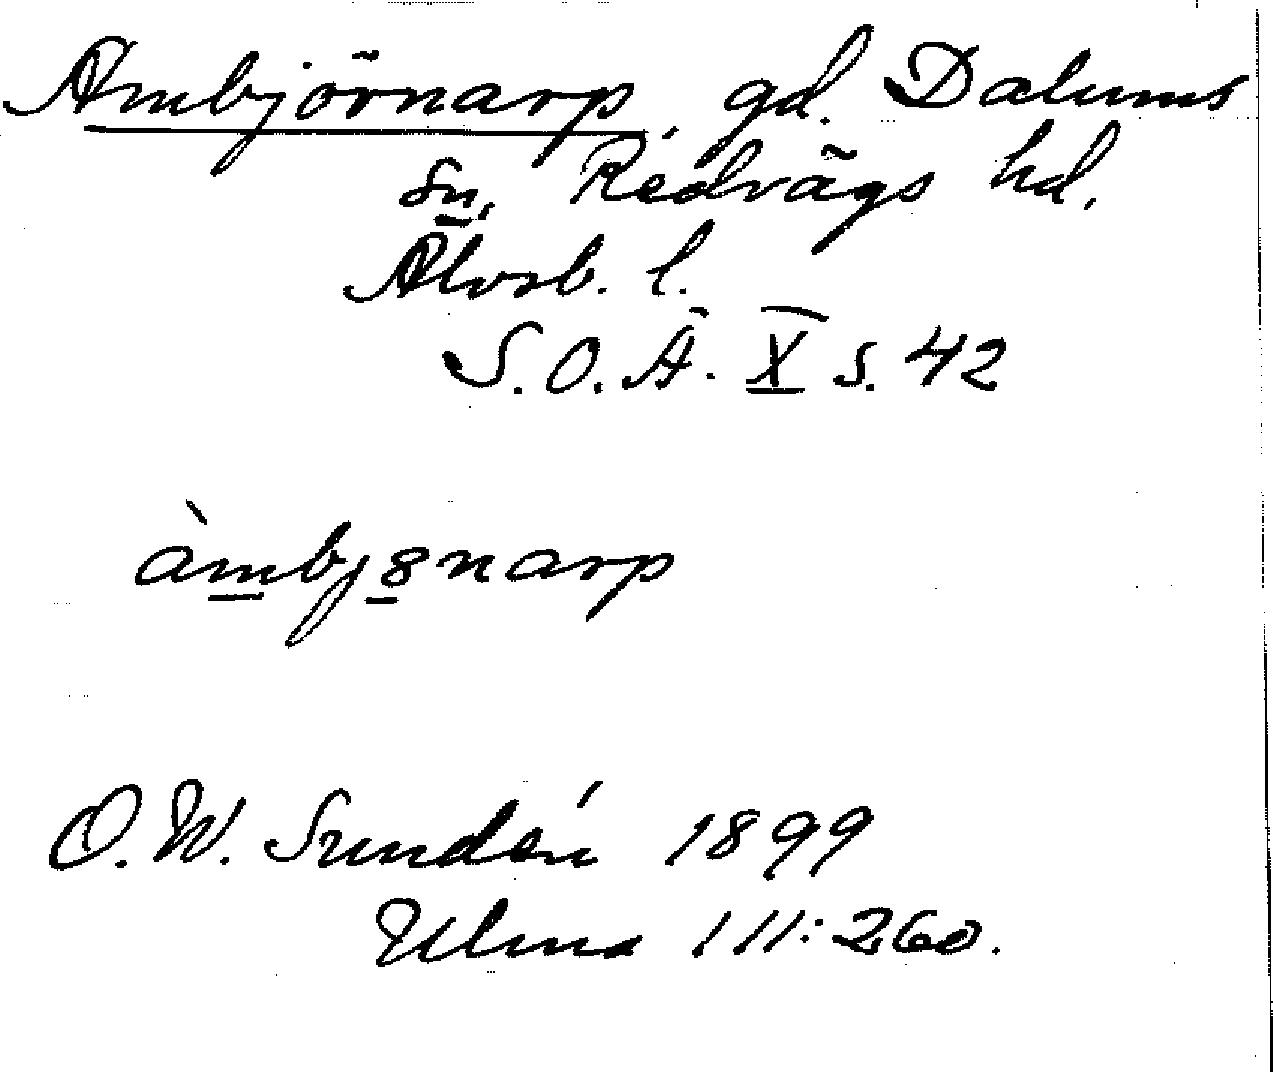 Ambjörnarp, gd. Dalums
sn, Redvägs hd.
Älvsb. l.
S.O.Ä. X s. 42
àmbjȣnarp
O.W. Sundén 1899
Ulma 111:260.